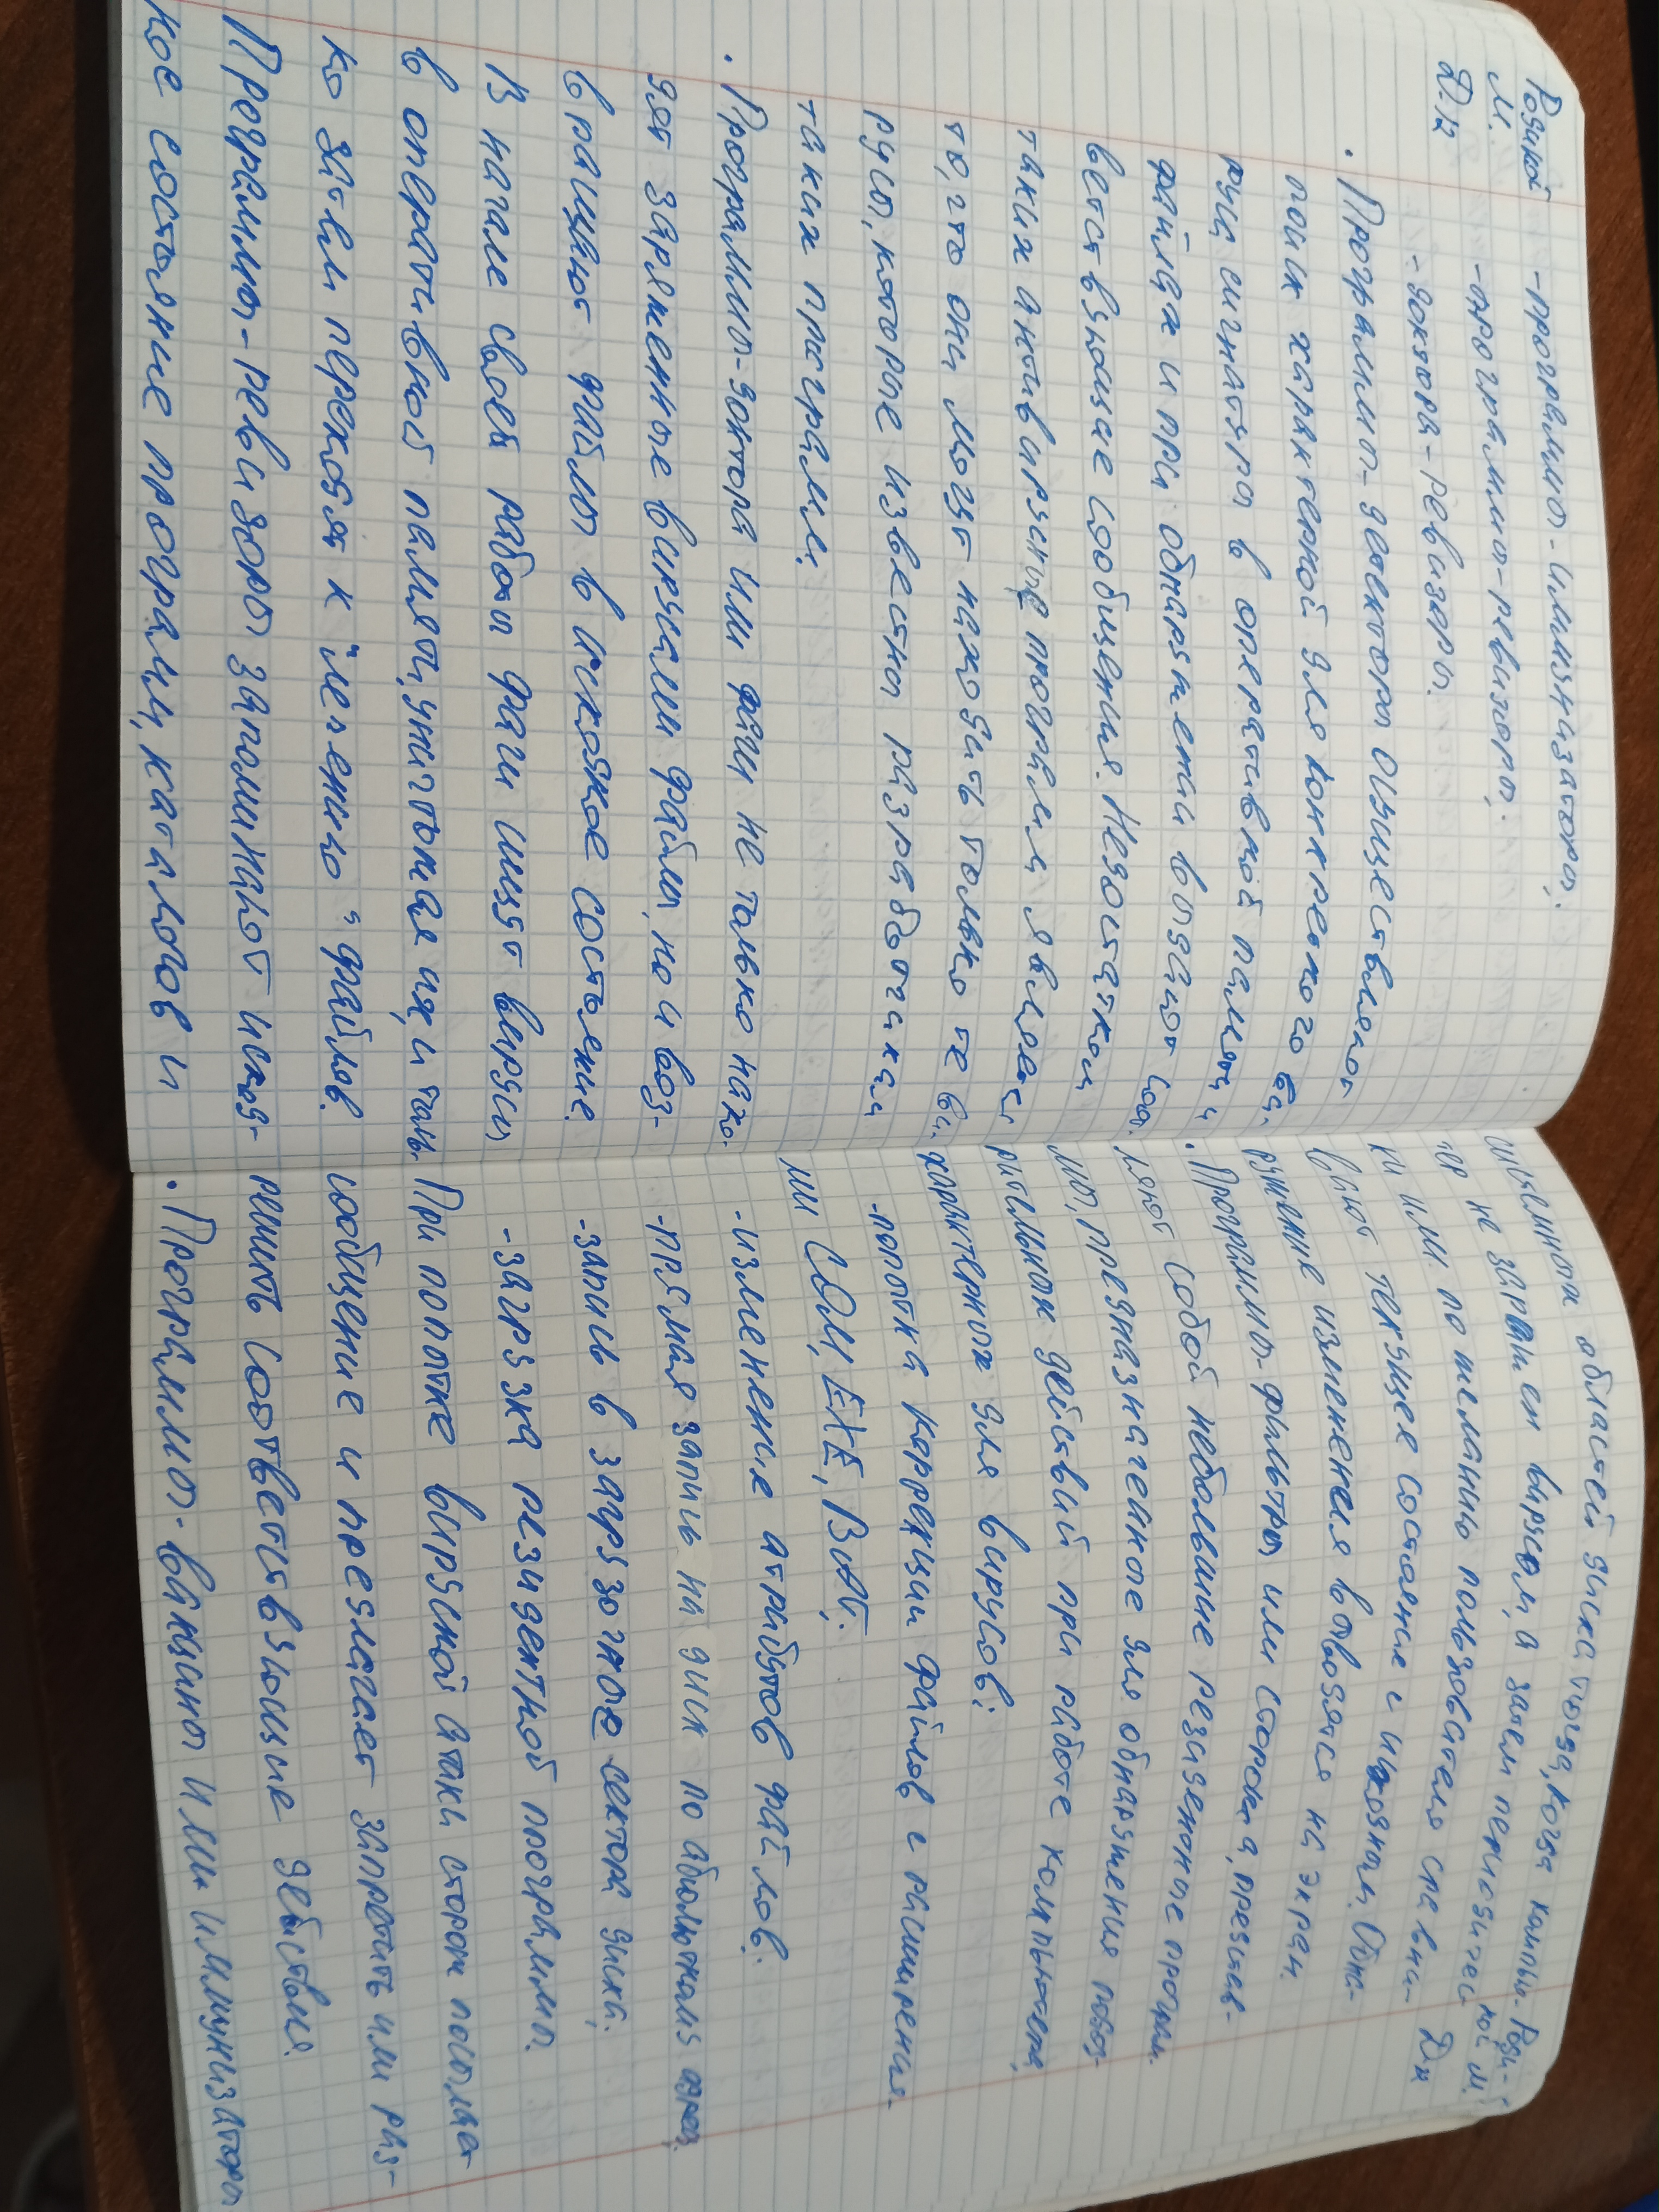 Родикой
М.
Д.12
-программы-иммунизаторы;
-программы-ревизоры;
-доктора-ревизоры.
• Программы-детекторы осуществляют
поиск характерной для конкретного ви.
руса сигнатуры в оперативной памяти и
файлах и при обнаружении выдают соот.
ветствующее сообщение. Недостатком
таких антивирусные программ является
то, что они могут находить только те ви.
русы, которые известны разработчикам
таких программ.
• Программы-доктора или фаги не только нахо-
дят зараженные вирусами файлы, но и воз-
вращают файлы в исходное состояние.
В начале своей работы фаги ищут вирусы
в оперативной памяти, уничтожая их, и толь.
ко затем переходят к "лечению" файлов.
Программы-ревизоры запоминают исход-
ное состояние программ, каталогов и
системных областей диска тогда, когда компью-
тер не заражен вирусом, а затем периодичес-
ки или по желанию пользователя сравни-
вают текущее состояние с исходным. Обна-
руженные изменения выводятся на экран.
• Программы-фильтры или сторожа, представ-
ляют собой небольшие резидентные програм.
мы, предназначенные для обнаружения подоз-
рительных действий при работе компьютера,
характерных для вирусов:
-попытка коррекции файлов с расширения-
ми COM, EXE, BAT;
-изменение атрибутов файлов;
-прямая запись на диск по абсолютному адресу;
-запись в загрузочное сектора диска;
-загрузка резидентной программы.
При попытке вирусной атаки сторож посылает
сообщение и предлагает запретить или раз-
решить соответствующие действия.
• Программы-вакцины или иммунизаторы